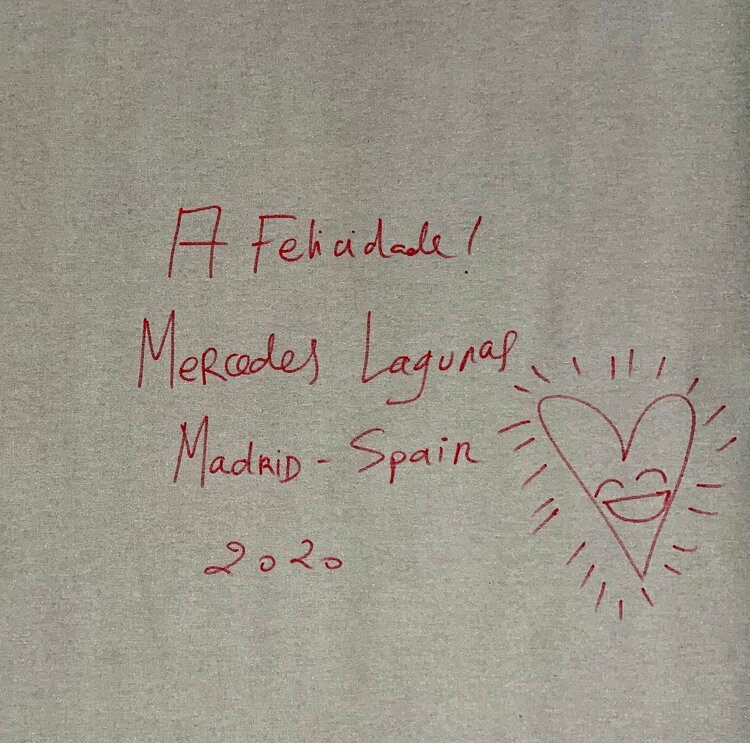 A Felicidade!
Mercedes Lagunas
Madrid - Spain
2020